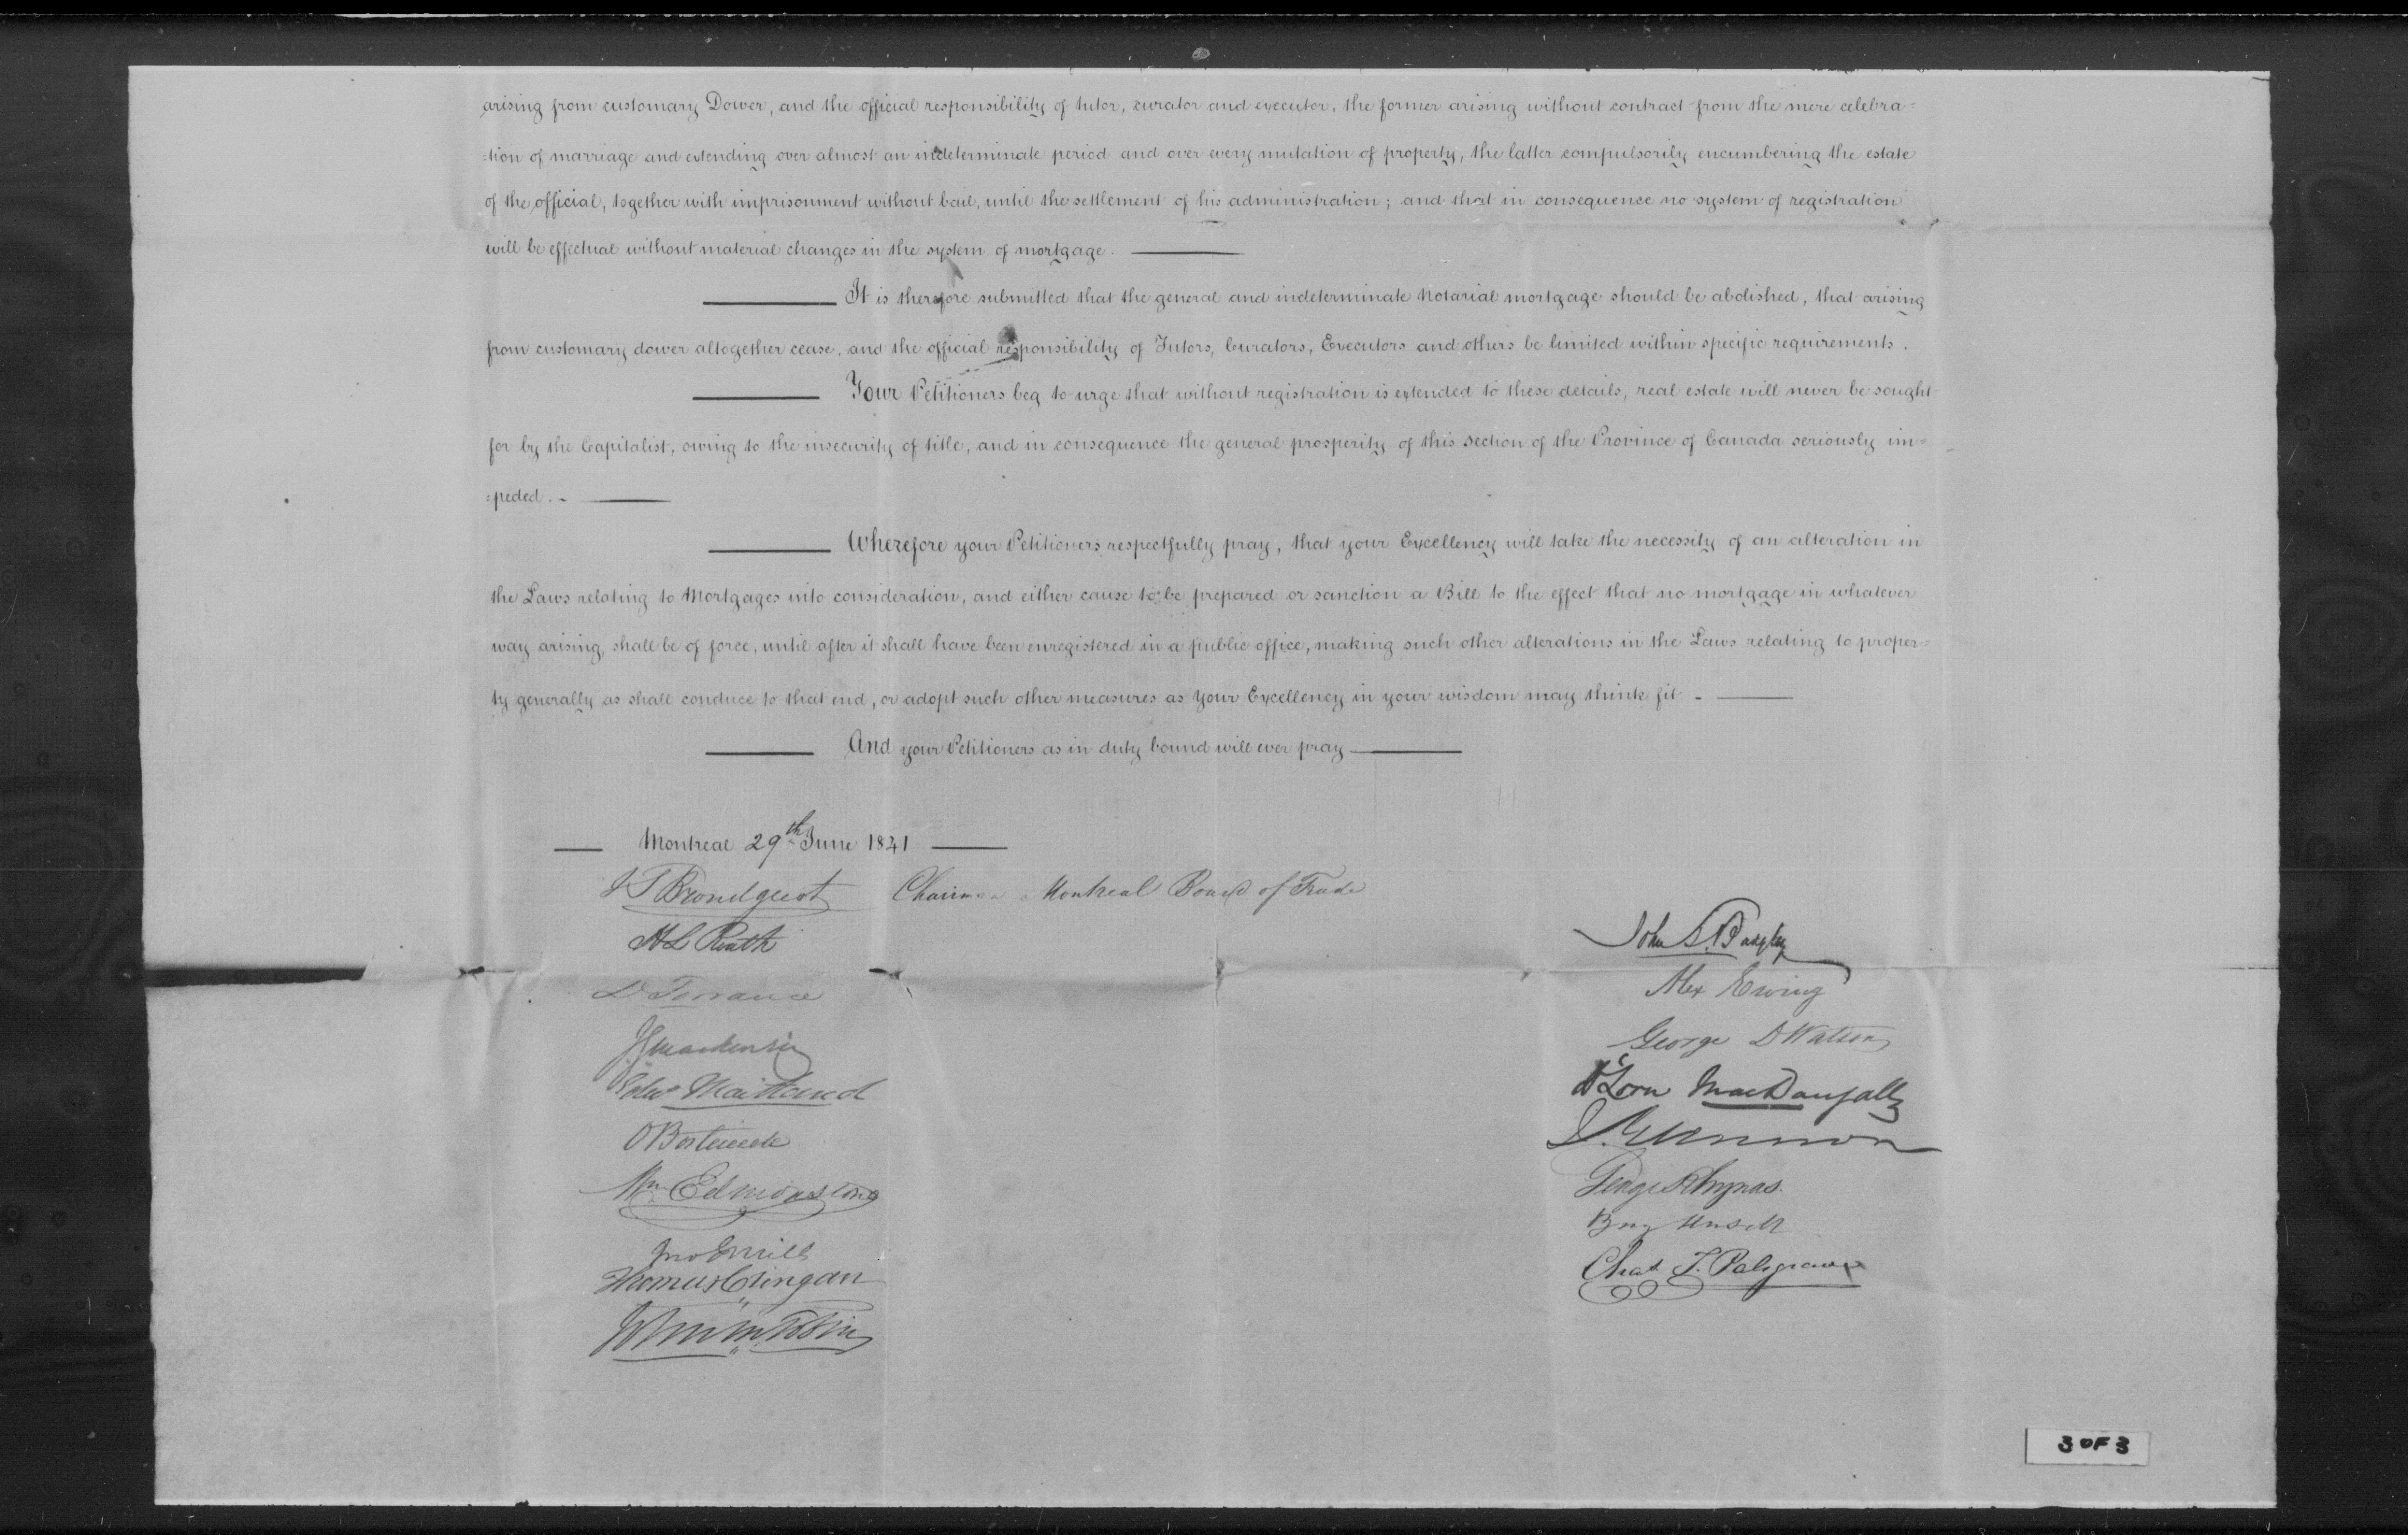 arising from customary Dower, and the official responsibility of tutor, curator and executor, the former arising without contract from the mere celebra=
=tion of marriage and extending over almost an indeterminate period and over every mutation of property, the latter compulsorily encumbering the estate
of the official, together with imprisonment without bail, until the settlement of his administration; and that in consequence no system of registration
will be effectual without material changes in the system of mortgage.
It is therefore submitted that the general and indeterminate Notarial mortgage should be abolished, that arising
from customary dower altogether cease, and the official responsibility of Tutors, Curators, Executors and others be limited within specific requirements.
Your Petitioners beg to urge that without registration is extended to these details, real estate will never be sought
for by the Capitalist, owing to the insecurity of title, and in consequence the general prosperity of this section of the Province of Canada seriously im=
=peded. -
Wherefore your Petitioners respectfully pray, that your Excellency will take the necessity of an alteration in
the Laws relating to Mortgages into consideration, and either cause to be prepared or sanction a Bill to the effect that no mortgage in whatever
way arising, shall be of force, until after it shall have been enregistered in a public office, making such other alterations in the Laws relating to proper=
ty generally as shall conduce to that end, or adopt such other measures as Your Excellency in your wisdom may think fit -
And your Petitioners as in duty bound will ever pray
Montreal 29th June 1841
J T Brondgeest Chairman Montreal Board of Trade
H L Routh
D Torrance
Edwd Maitland
O Bostwick
Wm Edmonstone
Jno E Mills
Thomas Cringan
John
Alex Ewing
George D Watson
D Lorn MacDougall
George Rhynas.
Chas F. Palsgrave
3 OF 3